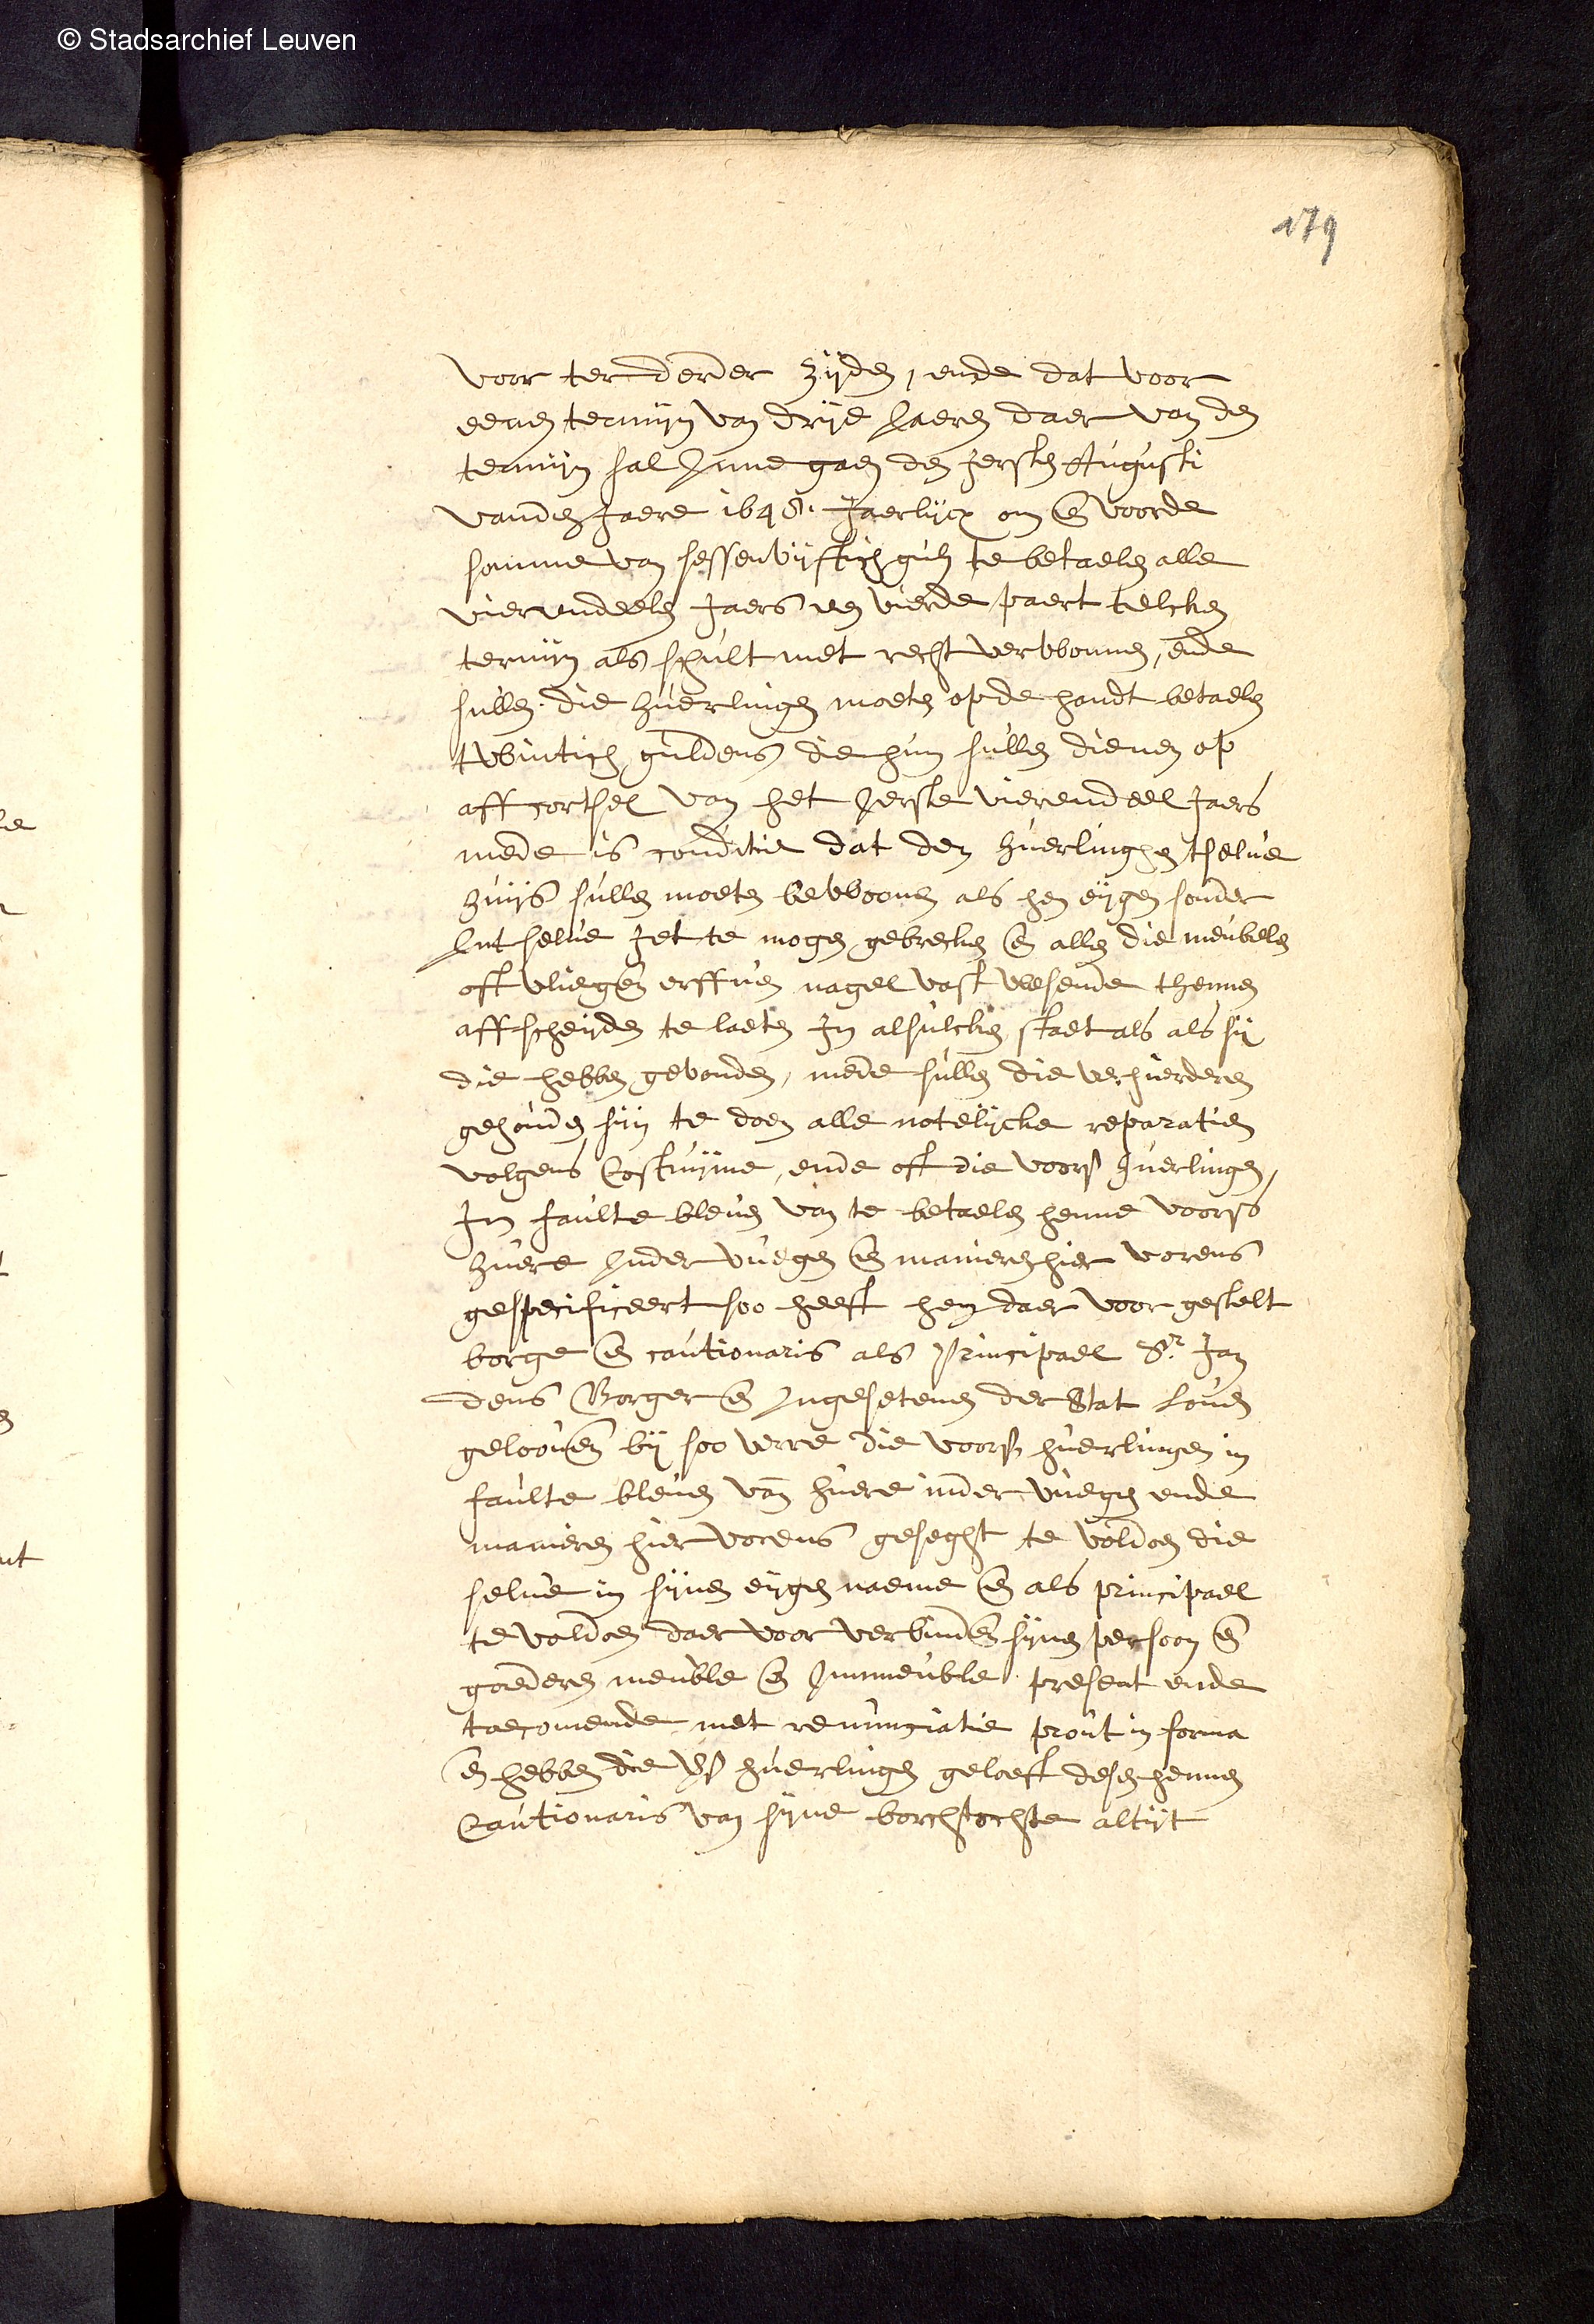 © Stadsarchief Leuven
179
voor ter derder zijden, ende dat voor
eenen termijn van drije jaeren daer van den
termijn sal inne gaen den jersten Augusti
vanden jaere 1648. jaerlijcx om en voorde
somme van sessenvijftich guls te betaelen alle
vierendeelen jaers een vierde paert telcken
termijn als schult met recht verwonnen, ende
sullen die huerlingen moeten op de handt betaelen
twintich guldens die hun sullen dienen op
affcortsel van het jerste vierendeel jaers
mede is conditie dat den huerlinghen tselve
huijs sullen moeten bewoonen als hen eijgen sonder
int selve jet te mogen gebrecken en alle die meubelen
oft erffven nagel vast wesende thennen
affscheijden te laeten in alsulcken staet als als sij
die hebben gevonden, mede sullen die verhuerderen
gehouden sijn te doen alle notelijcke reparatien
volgens Costuijme, ende oft die voors huerlingen,
in faulte bleven van te betaelen henne voors
huere inder vuegen en manieren hier vorens
gespecificeert soo heeft hen daer voor gestelt
borge en cautionaris als principael Sr Jan
dens Borger en ingesetenen der Stat Loven
geloovende bij soo verre die voors huerlingen in
faulte bleven van huere inder vuegen ende
manieren hier vorens geseght te voldoen die
selve in sijnen eijgen naeme en als principael
te voldoen daer voor verbindende sijnen persoon en
goederen meuble en immeuble present ende
toecomende met renunciatie prout in forma
en hebben die vs huerlingen geloeft desen hennen
Cautionaris van sijne borchtochte altijt